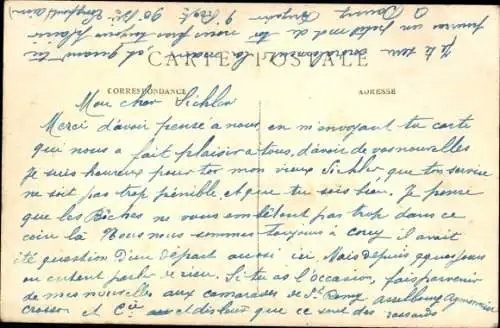 CARTE POSTALE
CORRESPONDANCE
ADRESSE
Mon cher Sichler
Merci d'avoir pensé a nous, en m'envoyant ta carte
qui nous a fait plaisir a tous, d'avoir de vos nouvelles
Je suis heureux pour toi mon vieux Sichler, que ton service
ne soit pas trop pénible, et que tu sois bien. Je pense
que les Boches ne vous embêtent pas trop dans ce
coin là Nous nous sommes toujours à il avait
été question d'un départ aussi ici. Mais depuis quelques jours
on entend parler de rien. Si tu as l'occasion, fais parvenir
de mes nouvelles aux camarades de St Remy
et Cie et dis leur que ce sont des
Je te serre cordialement la main, et quand tu
pourras un petit mot de toi nous fera toujours plaisir